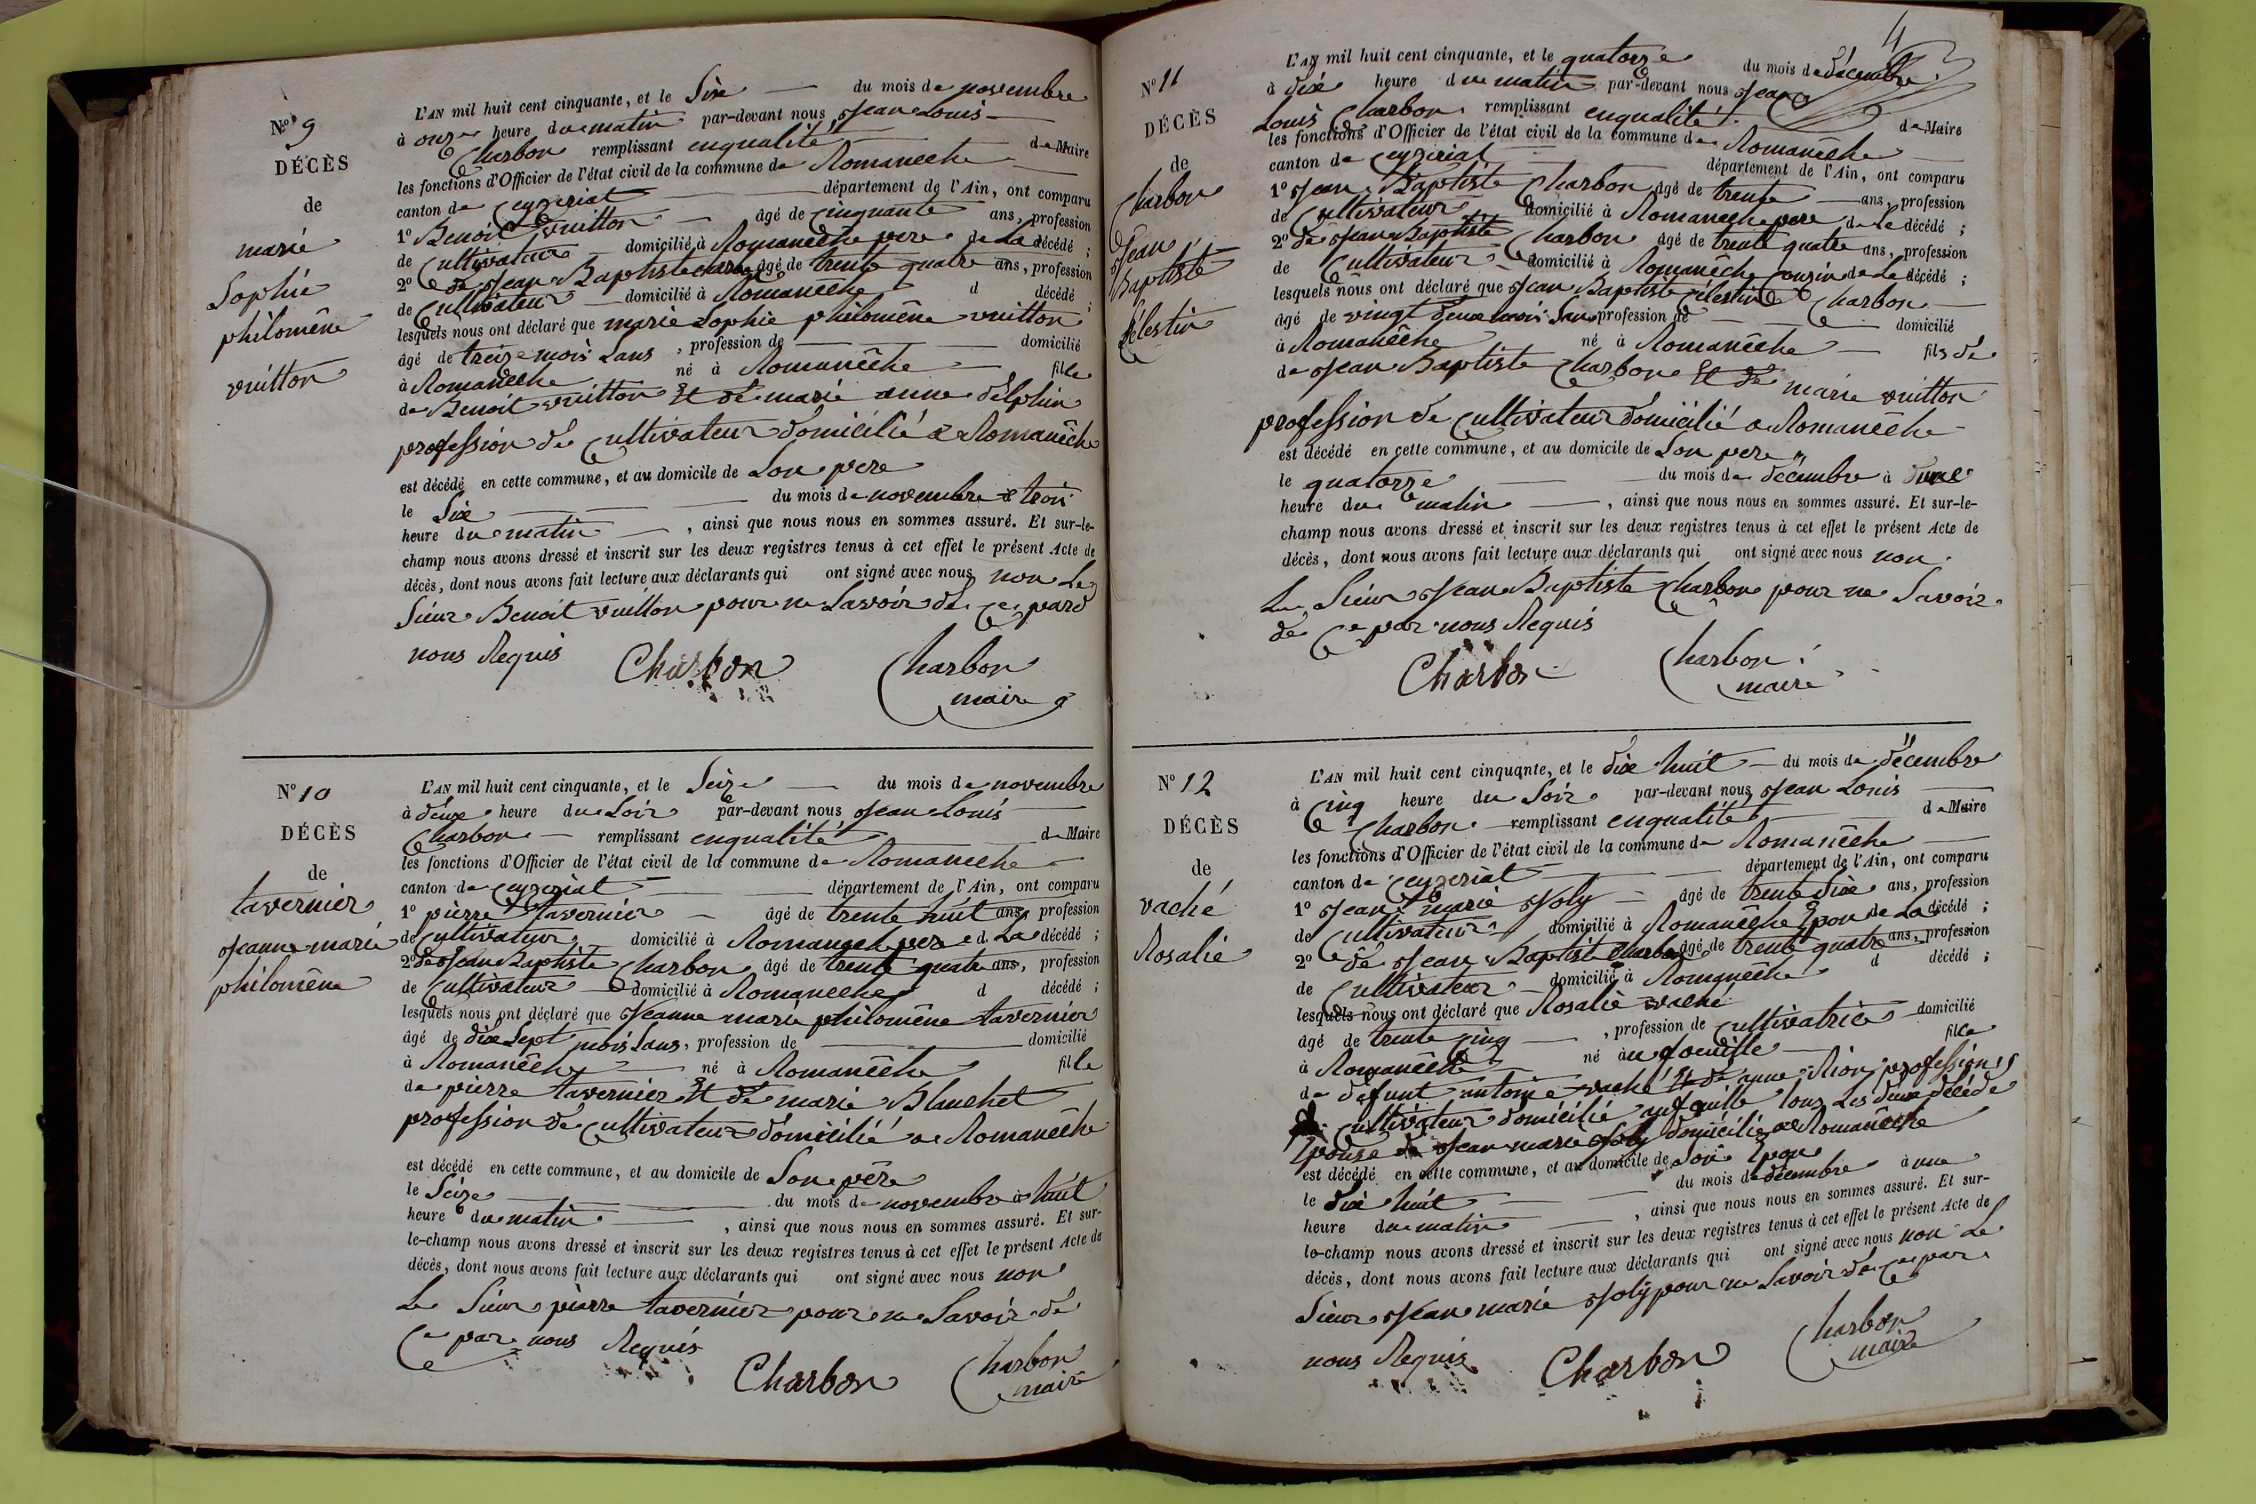 N° 9
DÉCÈS
de
marie
Sophie
philomêne
vuitton
L'AN mil huit cent cinquante, et le Six du mois de novembre
à onze heure du matin par-devant nous Jean Louis
Charbon remplissant enqualité de Maire
les fonctions d'Officier de l'état civil de la commune de Romanêche
canton de Ceyzeriat département de l'Ain, ont comparu
1° Benoit vuitton âgé de Cinquante ans, profession
de Cultivateur domicilié à Romanêche pere de La décédé ;
2° de Jean Baptiste Charbon âgé de trente quatre ans, profession
de Cultivateur domicilié à Romanêche d décédé ;
lesquels nous ont déclaré que marie Sophie philomêne vuitton
âgé de treize mois Sans , profession de domicilié
à Romanêche né à Romanêche fille
de Benoit vuitton Et de marie anne delphin
profession de Cultivateur domicilié a Romanêche
est décédé en cette commune, et au domicile de Son pere
le Six du mois de novembre à trois
heure du matin , ainsi que nous nous en sommes assuré. Et sur-le-
champ nous avons dressé et inscrit sur les deux registres tenus à cet effet le présent Acte de
décès, dont nous avons fait lecture aux déclarants qui ont signé avec nous non Le
Sieur Benoit vuitton pour ne Savoir de Ce par
nous Requis
Charbon Charbon
maire
N° 10
DÉCÈS
de
tavernier
Jeanne marie
philomêne
L'AN mil huit cent cinquante, et le Seize du mois de novembre
à deux heure du Soir par-devant nous Jean Louis
Charbon remplissant enqualité de Maire
les fonctions d'Officier de l'état civil de la commune de Romanêche
canton de Ceyzeriat département de l'Ain, ont comparu
1° pierre tavernier âgé de trente huit ans, profession
de Cultivateur domicilié à Romanêche pere d La décédé ;
2° de Jean Baptiste Charbon âgé de trente quatre ans, profession
de Cultivateur domicilié à Romanêche d décédé ;
lesquels nous ont déclaré que Jeanne marie philomêne tavernier
âgé de dix Sept mois Sans, profession de domicilié
à Romanêche né à Romanêche fille
de pierre tavernier Et de marie Blanchet
profession de Cultivateur domicilié a Romanêche
est décédé en cette commune, et au domicile de Son pére
le Seize du mois de novembre à huit
heure du matin , ainsi que nous nous en sommes assuré. Et sur-
le-champ nous avons dressé et inscrit sur les deux registres tenus à cet effet le présent Acte de
décès, dont nous avons fait lecture aux déclarants qui ont signé avec nous non
Le Sieur pierre tavernier pour ne Savoir de
Ce par nous Requis
Charbon Charbon
maire
4
N° 11
DÉCÈS
de
Charbon
Jean
Baptiste
Célestin
L'AN mil huit cent cinquante, et le quatorze du mois de décembre
à dix heure du matin par-devant nous Jean
Louis Charbon remplissant enqualité de Maire
les fonctions d'Officier de l'état civil de la commune de Romanêche
canton de Ceyzeriat département de l'Ain, ont comparu
1° Jean Baptiste Charbon âgé de trente ans, profession
de Cultivateur domicilié à Romanêche pere de Le décédé ;
2° de Jean Baptiste Charbon âgé de trente quatre ans, profession
de Cultivateur domicilié à Romanêche Cousin de Le décédé ;
lesquels nous ont déclaré que Jean Baptiste Célestin Charbon
âgé de vingt deux mois Sans profession de domicilié
à Romanêche né à Romanêche fils de
de Jean Baptiste Charbon Et de marie vuitton
profession de Cultivateur domicilié a Romanêche
est décédé en cette commune, et au domicile de Son pere
le quatorze du mois de décembre à
heure du matin , ainsi que nous nous en sommes assuré. Et sur-le-
champ nous avons dressé et inscrit sur les deux registres tenus à cet effet le présent Acte de
décès, dont nous avons fait lecture aux déclarants qui ont signé avec nous non
Le Sieur Jean Baptiste Charbon pour ne Savoir
de Ce par nous Requis
Charbon Charbon
maire
N° 12
DÉCÈS
de
vaché
Rosalie
L'AN mil huit cent cinquante, et le dix huit du mois de décembre
à Cinq heure du Soir par-devant nous Jean Louis
Charbon remplissant enqualité de Maire
les fonctions d'Officier de l'état civil de la commune de Romanêche
canton de Ceyzeriat département de l'Ain, ont comparu
1° Jean marie Joly âgé de trente dix ans, profession
de Cultivateur domicilié à Romanêche Epou de La décédé ;
2° de Jean Baptiste Charbon âgé de trente quatre ans, profession
de Cultivateur domicilié à Romanêche d décédé ;
lesquels nous ont déclaré que Rosalie vaché
âgé de trente Cinq , profession de Cultivatrice domicilié
à Romanêche né à fille
de defunt antoine vaché Et de anne Rion profession
Cultivateur domicilié tous Les deux décédé
Epouse de Jean marie Joly domicilié a Romanêche
est décédé en cette commune, et au domicile de Son Epou
le dix huit du mois de décembre à une
heure du matin , ainsi que nous nous en sommes assuré. Et sur-
le-champ nous avons dressé et inscrit sur les deux registres tenus à cet effet le présent Acte de
décès, dont nous avons fait lecture aux déclarants qui ont signé avec nous non Le
Sieur Jean marie Joly pour ne Savoir de Ce par
nous Requis
Charbon Charbon
maire